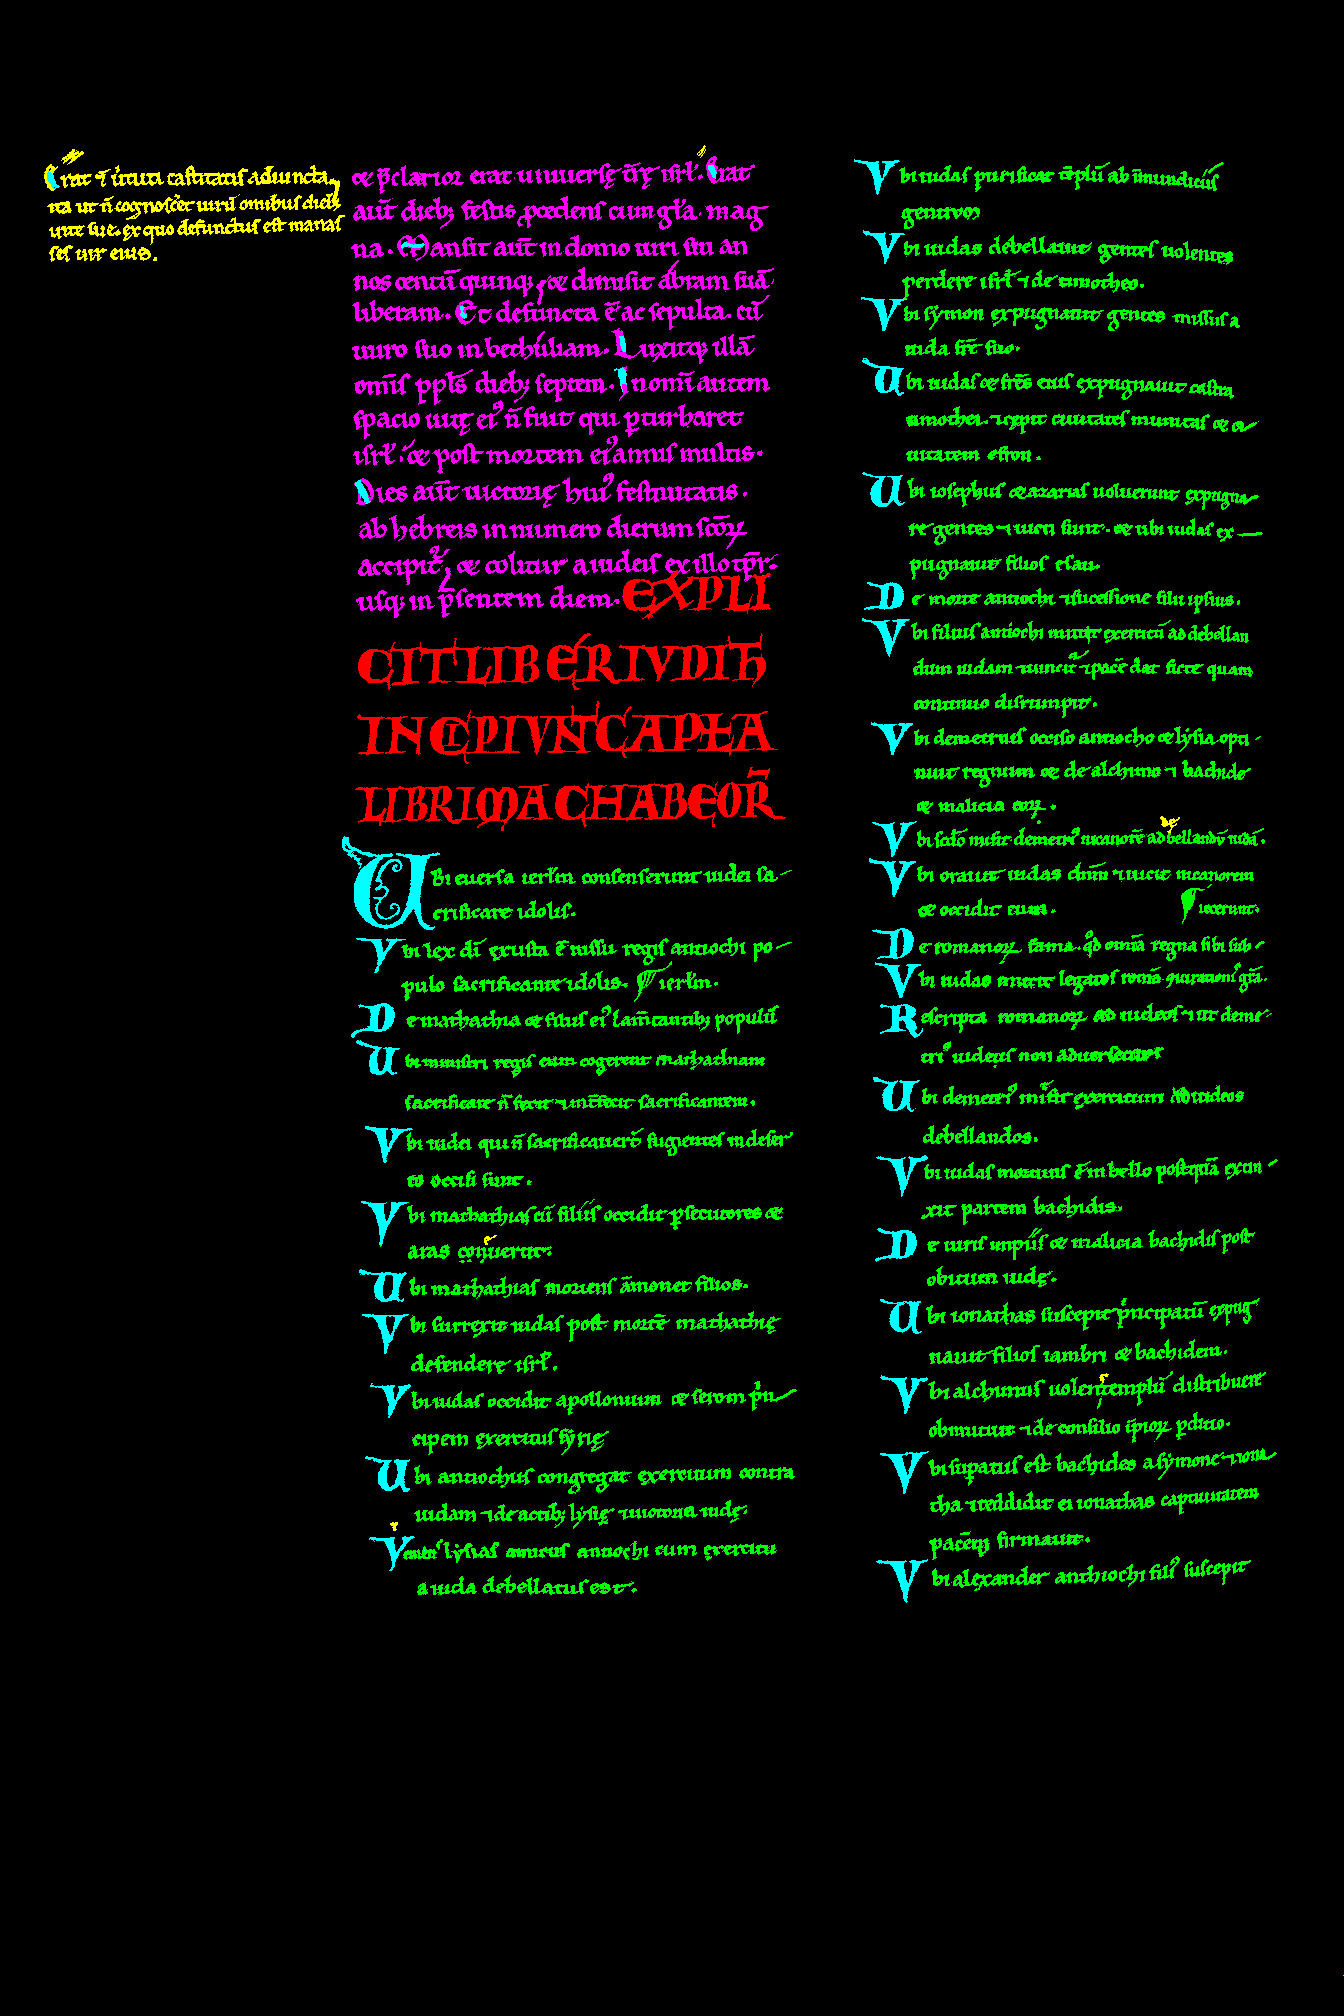 Erat &amp; uirtuti castitatis adiuncta
ita ut ñ cognosc̃et uirũ omibus dieb;
uite sue. ex quo defunctus est manas
ses uir eius.
&amp; p̃clarior erat uniuersę t̃rę isrł. Erat
aut̃ dieb; festis ꝓcedens cum gła mag
na. Mansit aut̃ in domo uiri sui an
nos centũ quinq; &amp; dimisit abram suã
liberam. Et defuncta ẽ ac sepulta cũ
uiro suo in bethuliam. Luxitq; illã
omĩs ppłs dieb; septem. In omĩ autem
spacio uitę eiꝰ ñ fuit qui ꝑturbaret
isrł. &amp; post mortem eiꝰ annis multis.
Dies aut̃ uictorię huiꝰ festiuitatis.
ab hebreis in numero dierum scõꝝ
accipit᷑, &amp; colitur a iudeis ex illo tp̃r
usq; in p̃sentem diem. EXPLI
CIT LIBER IVDITH
INCIPIVNT CAPŁA
LIBRI MACHABEOR̃
Ubi euersa ierłm consenserunt iudei sa-
crificare idolis.
Vbi lex dĩ exusta ẽ iussu regis antiochi po-
pulo sacrificante idolis. ¶ ierłm.
De mathathia &amp; filiis eiꝰ lam̃tantib; populũ
Ubi ministri regis cum cogerent mathathiam
sacrificare ñ fecit ⁊ int̃fecit sacrificantem.
Vbi iudei qui ñ sacrificauer̃t fugientes in deser
to occisi sunt.
Vbi mathathias cũ filiis occidit ꝑsecutores &amp;
aras conuertit.
Ubi mathathias moriens ãmonet filios.
Vbi surrexit iudas post mortẽ mathathię
defendere isrł.
Vbi iudas occidit apollonium &amp; seron p̃n
cipem exercitus syrię
Ubi antiochus congregat exercitum contra
iudam ⁊ de actib; lysię ⁊ uictoria iudę.
Venit lysias amicus antiochi cum exercitu
a iuda debellatus est.
Vbi iudas purificat templũ ab inmundiciis
gentium
Vbi iudas debellauit gentes uolentes
perdere isrł ⁊ de timotheo.
Vbi symon expugnauit gentes missus a
iuda fr̃e suo.
Ubi iudas &amp; frẽs eius expugnauit castra
timothei. ⁊ cepit ciuitates munitas &amp; ci
uitatem efron.
Ubi iosephus &amp; azarias uoluerunt expugna
re gentes ⁊ uicti sunt. &amp; ubi iudas ex-
pugnauit filios esau.
De morte antiochi ⁊ sucessione filii ipsius.
Vbi filius antiochi mittit exercitũ ad debellan
dum iudam ⁊ uincit᷑ ⁊ pacẽ dat ficte quam
continuo disrumpit.
Vbi demetrius occiso antiocho &amp; lysia opti-
nuit regnum &amp; de alchimo ⁊ bachide
&amp; malicia eoꝝ.
Vbi scdo misit demetriꝰ nicanorẽ ad debellandũ iudã.
Vbi orauit iudas dnm̃ ⁊ uicit nicanorem
&amp; occidit eum. ¶ iecerunt.
De romanoꝝ fama. qd̾ omĩa regna sibi sub-
Vbi iudas mittit legatos romã
Rescripta romanoꝝ ad iudeos ⁊ ut deme-
triꝰ iudeis non aduersetur
Ubi demetriꝰ misit exercitum ad iudeos
debellandos.
Vbi iudas mortuus ẽ in bello postquã extin-
xit partem bachidis.
De uiris impiis &amp; malicia bachidis post
obitum iudę.
Ubi ionathas suscepit p̃ncipatũ expug
nauit filios iambri &amp; bachidem.
Vbi alchimus uolens templũ distribuere
obmutuit ⁊ de consilio ip̃ioꝝ ꝑdito.
Vbi suꝑatus est bachides a symone ⁊ iona
tha ⁊ reddidit ei ionathas captiuitatem
pacẽq; firmauit.
Vbi alexander anthiochi filiꝰ suscepit